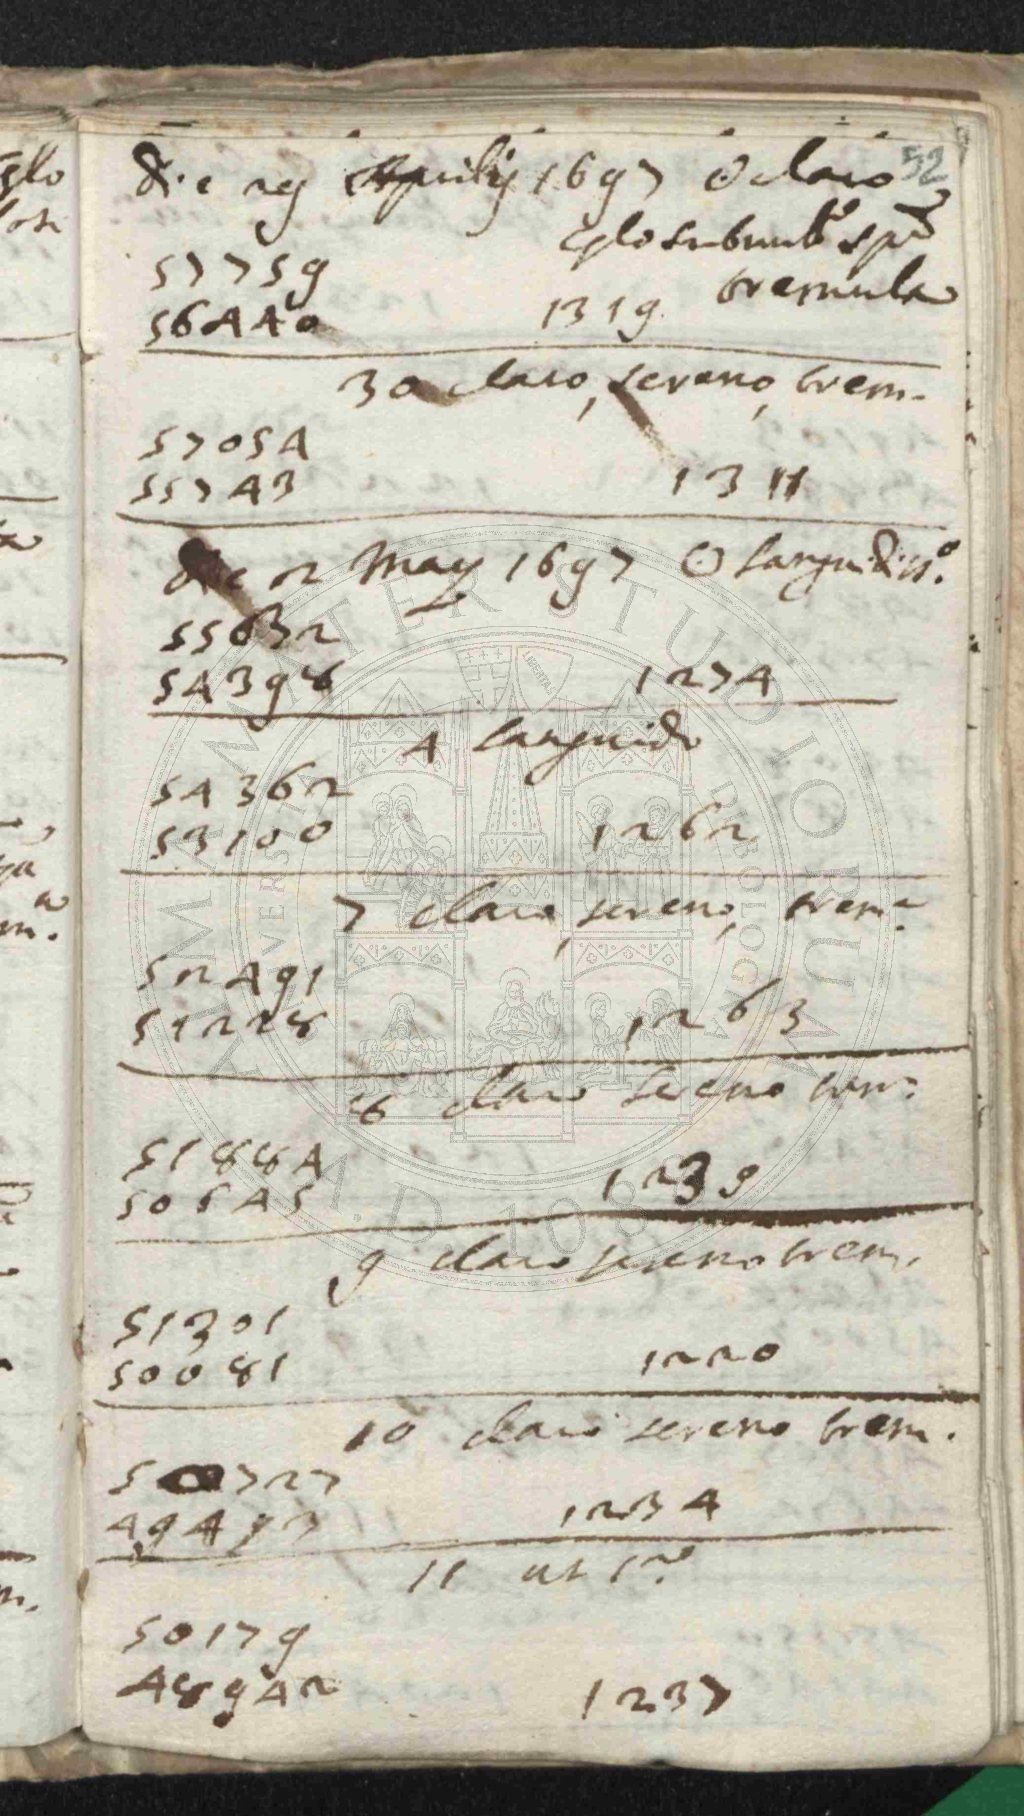 52
Die 29 Aprilis 1697 ☉ claro
57759 cælo subnub.o sp.a
tremula
56440 1319
30 claro, sereno, trem.
57054
55743 1311
die 2 May 1697 ☉ languidiss.o
55632
54398 1274
4 languido
54362
53100 1262
7 claro, sereno, trem.
52491
51228 1263
8 claro sereno trem.
51884
50545 1239
9 claro sereno trem.
51301
50081 1220
10 claro sereno trem.
50727
49493 1234
11 ut s.a
50179
48942 1237
ALMA MATER STUDIORUM
UNIVERSITÀ DI BOLOGNA
A.D. 1088
LIBERTAS